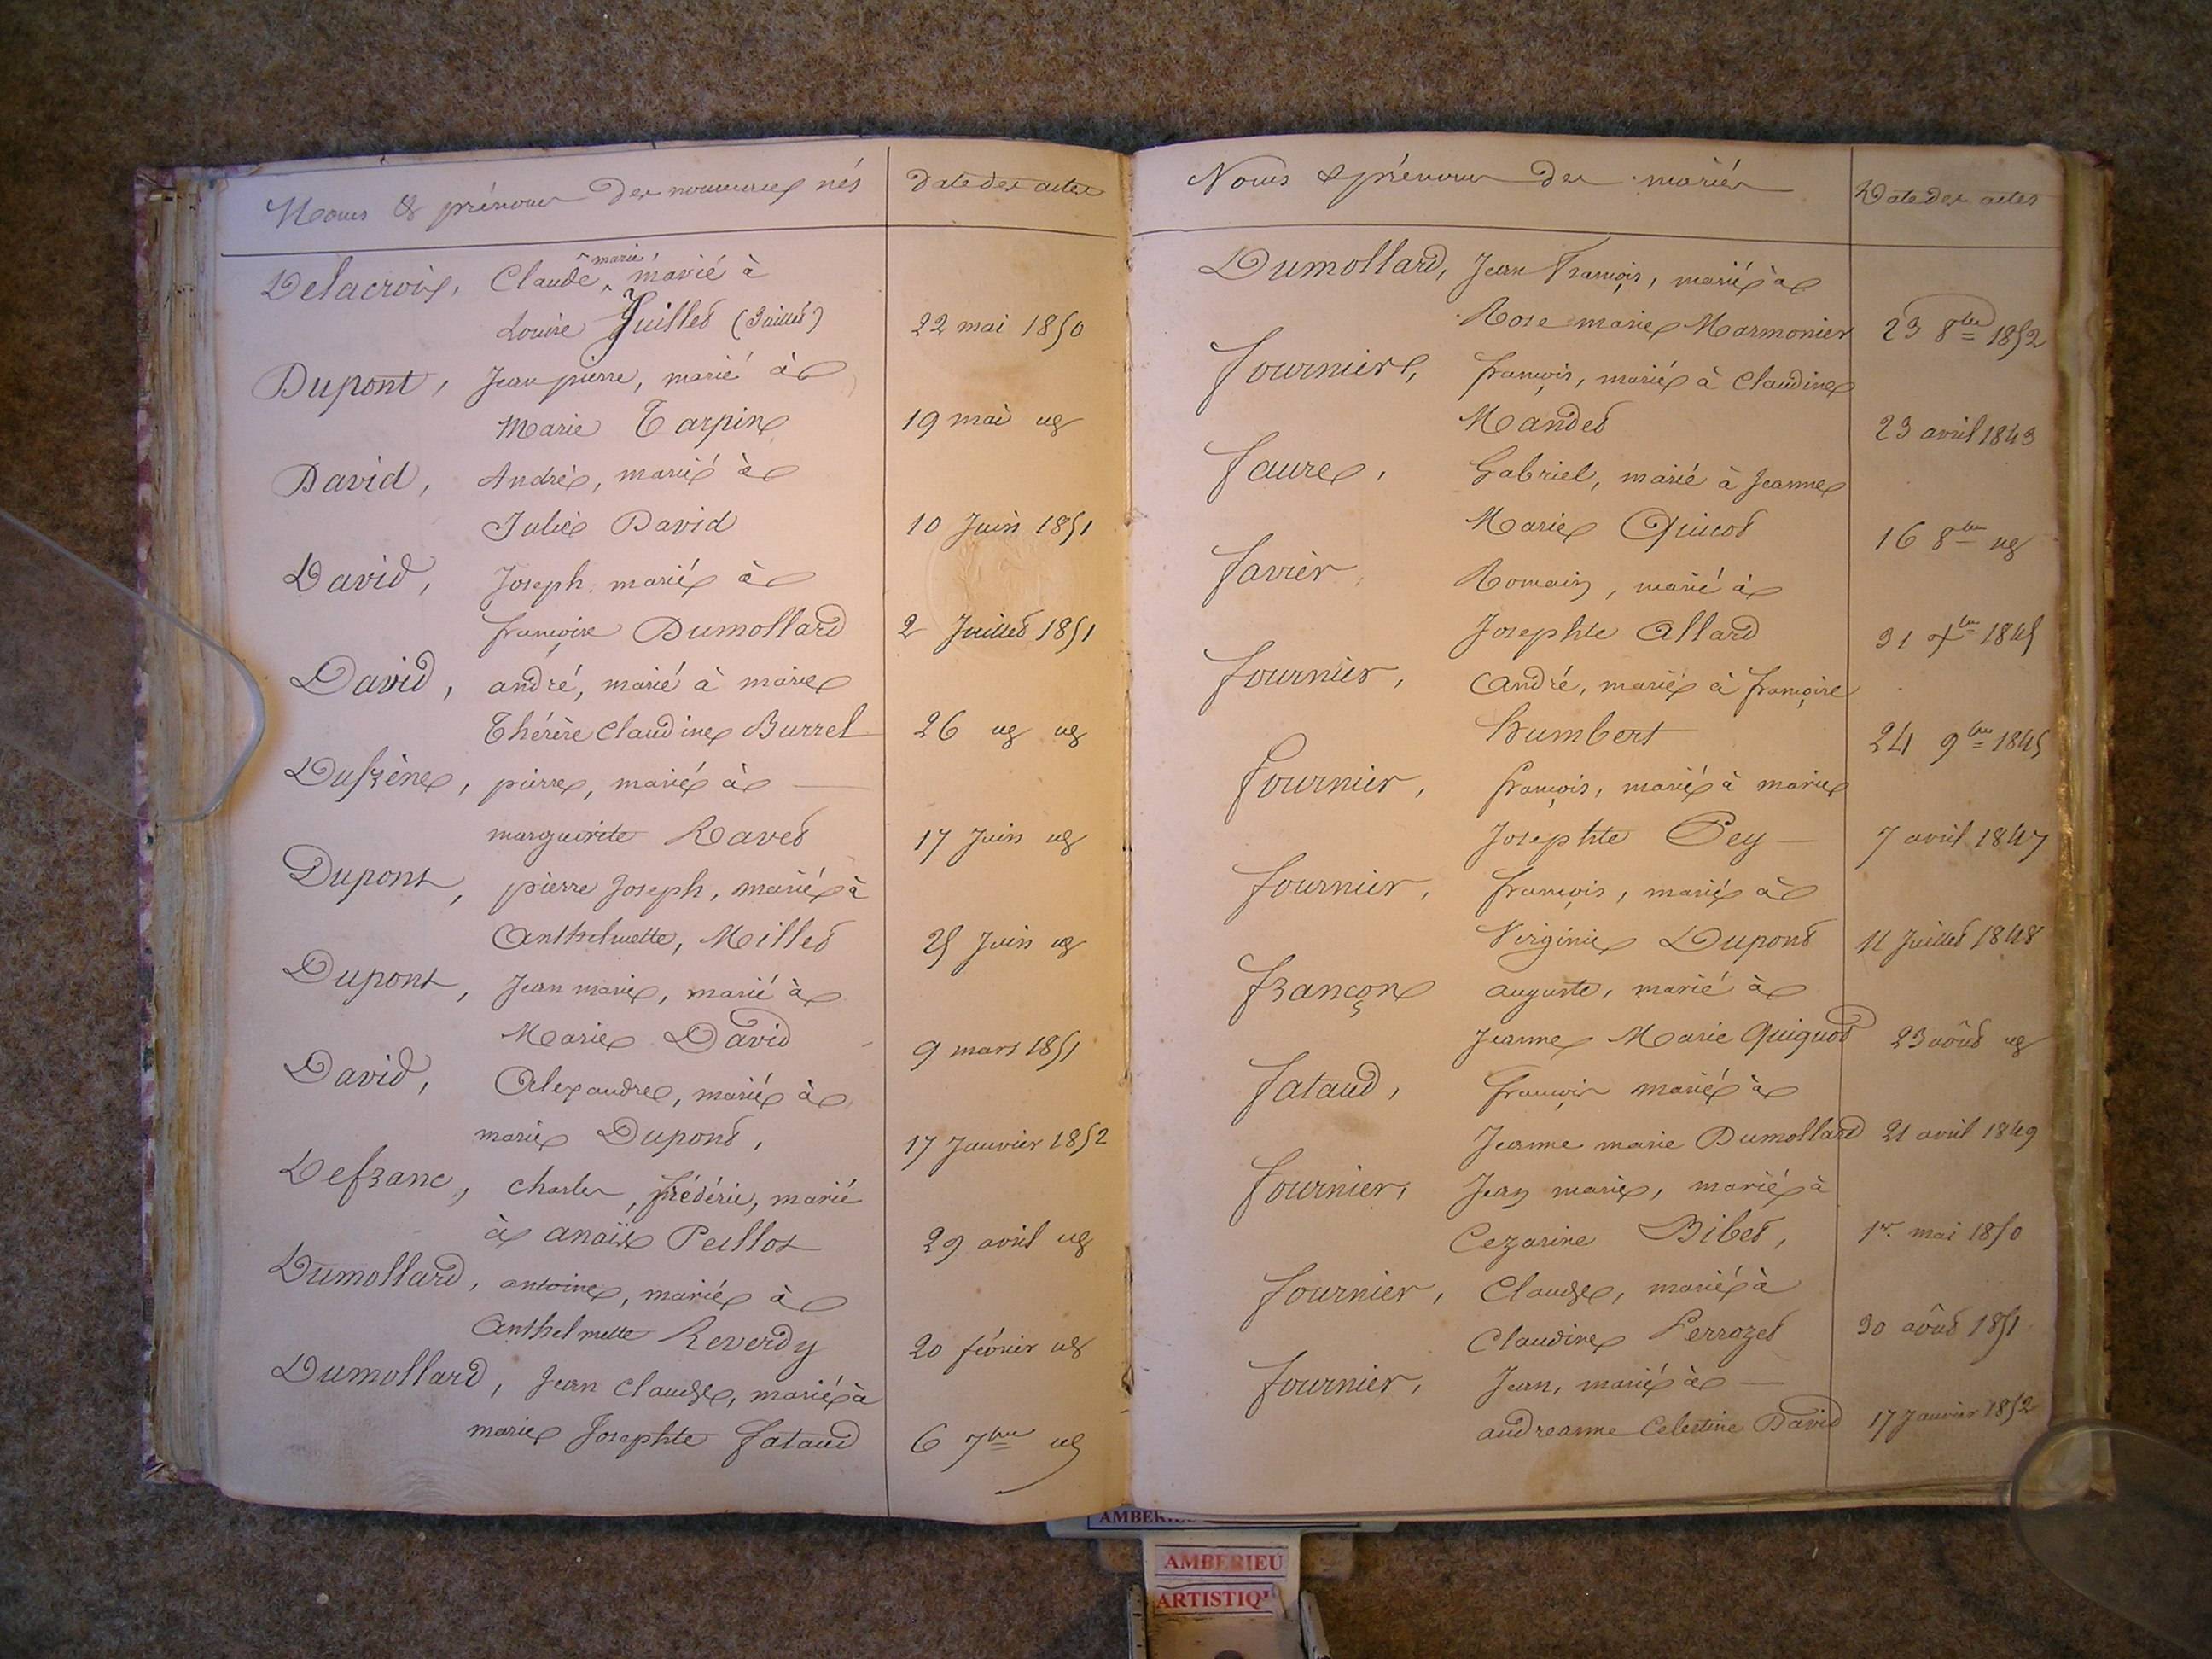 Noms & prénoms des nouveaux nés Date des actes
Delacroix, Claude, marie, marié à
Louise Juillet (Juillet) 22 mai 1850
Dupont, Jean pierre, marié à
Marie Tarpin 19 mai
David, André, marié à
Julie David 10 Juin 1851
David, Joseph marié à
françoise Dumollard 2 Juillet 1851
David, andré, marié à marie
Thérèse Claudine Burret 26
Dufrène, pierre, marié à
marguerite Ravet 17 Juin
Dupont, pierre Joseph, marié à
Anthelmette, Millet 25 Juin
Dupont, Jean marie, marié à
Marie David 9 mars 1851
David, Alexandre, marié à
marie Dupont, 17 Janvier 1852
Defranc, charles, frédéric, marié
à anaïse Peillot 29 avril
Dumollard, antoine, marié à
Anthelmette Reverdy 20 février
Dumollard, Jean Claude, marié à
marie Josephte fataud 6 7bre
Noms & prénoms des mariés Date des actes
Dumollard, Jean François, marié à
Rose marie Marmonier 23 8bre 1852
fournier, françois, marié à Claudine
Mandet 23 avril 1843
faure, Gabriel, marié à Jeanne
Marie Quicot 16 8bre
favier Romain, marié à
Josephte Allard 31 Xbre 1845
fournier, André, marié à françoise
humbert 24 9bre 1845
fournier, françois, marié à marie
Josephte Pey 7 avril 1847
fournier, françois, marié à
Virginie Dupont 11 Juillet 1848
françon auguste, marié à
Jeanne Marie Quiquot 23 août
fataud, françois marié à
Jeanne marie Dumollard 21 avril 1849
fournier, Jean marie, marié à
Cezarine Bibet, 1er. mai 1850
fournier, Claude, marié à
Claudine Perrozet 30 août 1851
fournier, Jean, marié à
andreanne Celestine David 17 Janvier 1852
AMBERIEU
ARTISTIQ